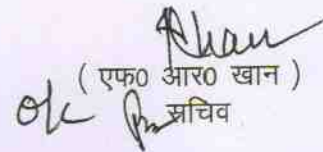 Khan
( एफ0 आर0 खान )
o/c
सचिव